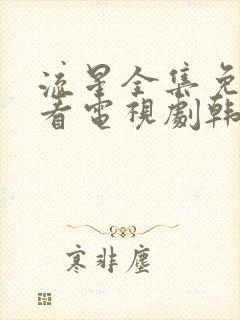 流星全集免
看電視劇韩
寒非塵